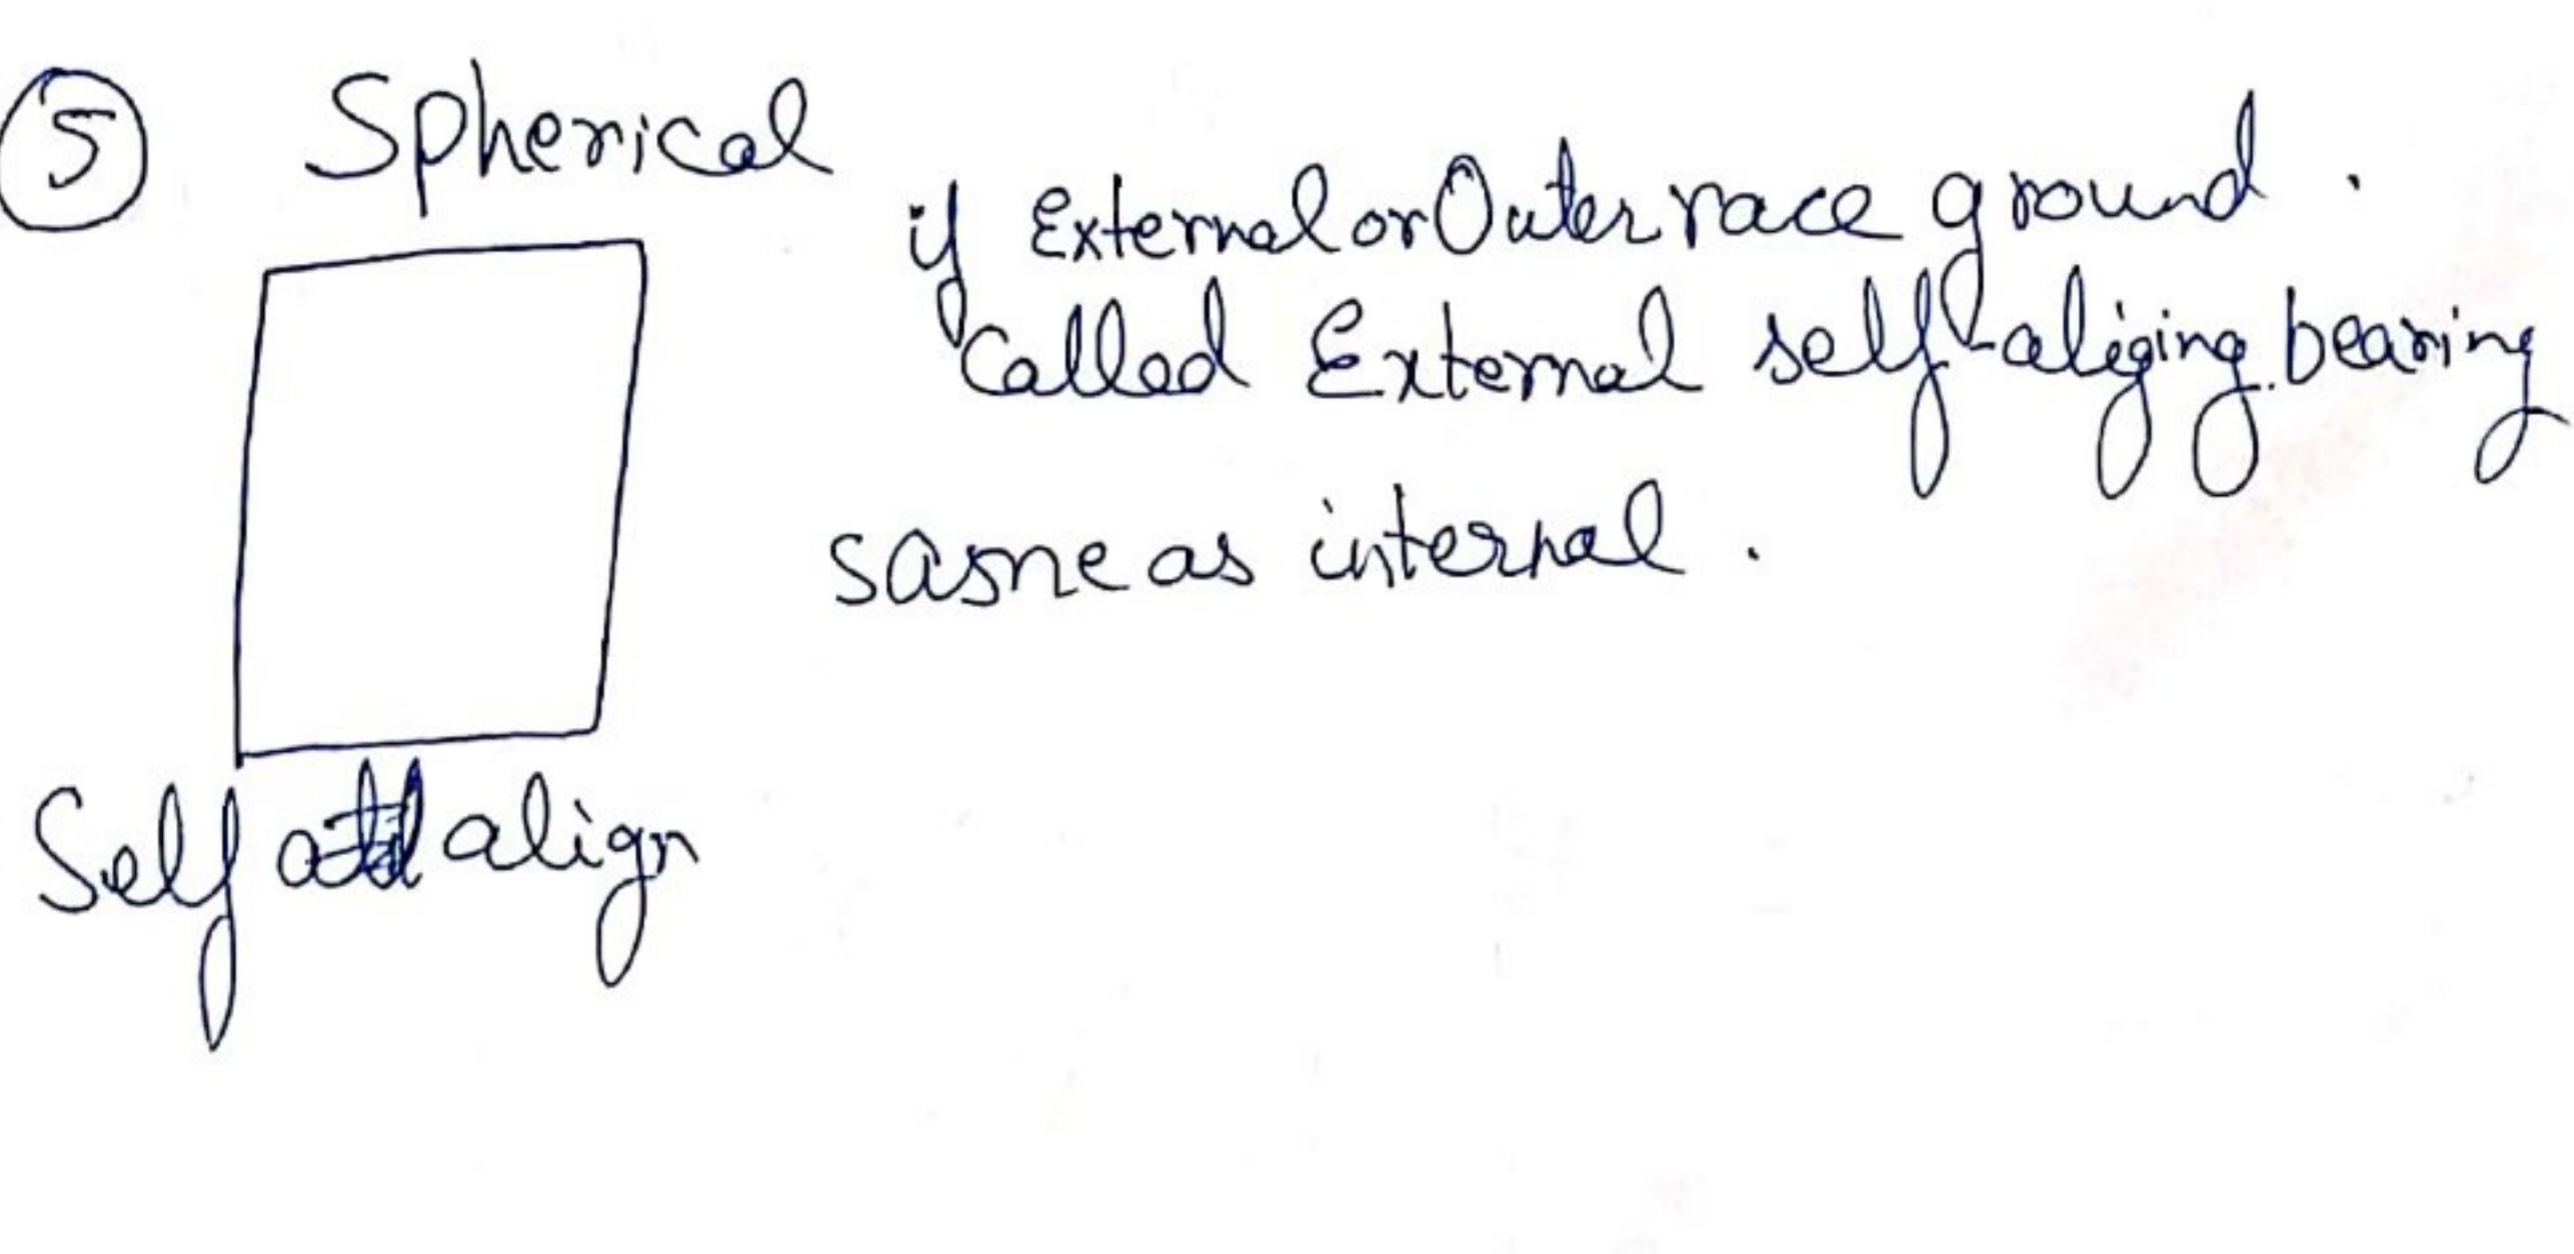 5 Spherical
if External or Outer race ground.
called External self-aliging bearing
same as internal.
Self align